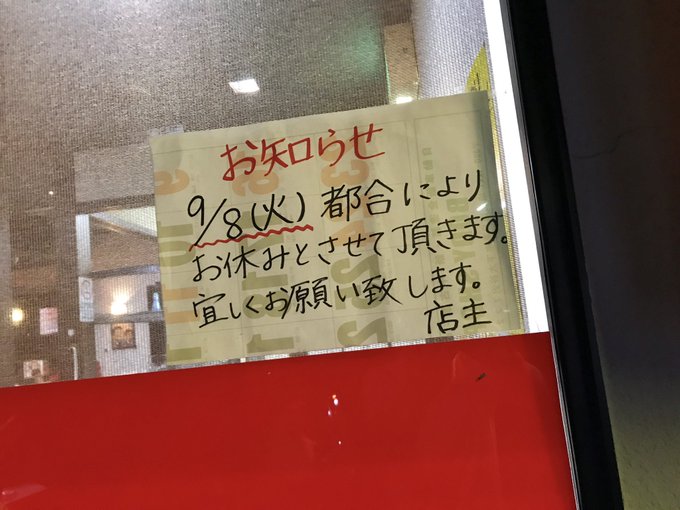 お知らせ
9/8(火) 都合により
お休みとさせて頂きます。
宜しくお願い致します。
店主